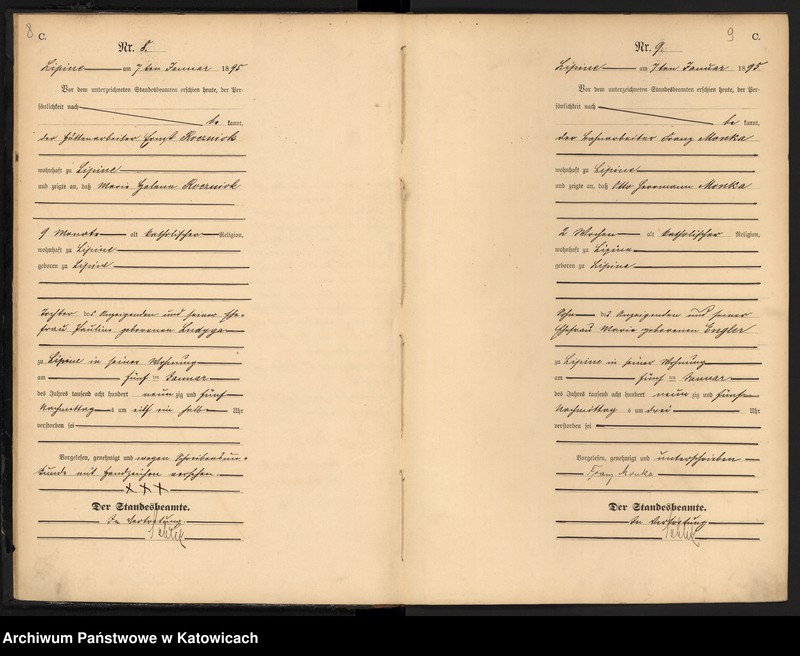 8
C.
Nr. 8.
Lipine am 7ten Januar 1895
Vor dem unterzeichneten Standesbeamten erschien heute, der Per-
sönlichkeit nach
be kannt,
der Hüttenarbeiter Ernst Roczniok
wohnhaft zu Lipine
und zeigte an, daß Marie Helene Roczniok
9 Monate alt katholischer Religion,
wohnhaft zu Lipine
geboren zu Lipine
Tochter des Anzeigenden und seiner Ehe-
frau Pauline geborenen Ludyga
zu Lipine in seiner Wohnung
am fünf ten Januar
des Jahres tausend acht hundert neun zig und fünf
Nachmittag s um eilf ein halb Uhr
verstorben sei
Vorgelesen, genehmigt und wegen Schreibensun-
kunde mit Handzeichen versehen.
+++
Der Standesbeamte.
In Vertretung
9
C.
Nr. 9.
Lipine am 7ten Januar 1895
Vor dem unterzeichneten Standesbeamten erschien heute, der Per-
sönlichkeit nach
be kannt,
der Franz Monka
wohnhaft zu Lipine
und zeigte an, daß Otto Herrmann Monka
2 Wochen alt katholischer Religion,
wohnhaft zu Lipine
geboren zu Lipine
Sohn des Anzeigenden und seiner
Ehefrau Marie geborenen Engler
zu Lipine in seiner Wohnung
am fünf ten Januar
des Jahres tausend acht hundert neun zig und fünf
Nachmittag s um drei Uhr
verstorben sei
Vorgelesen, genehmigt und unterschrieben
Franz Monka
Der Standesbeamte.
In Vertretung
Archiwum Państwowe w Katowicach